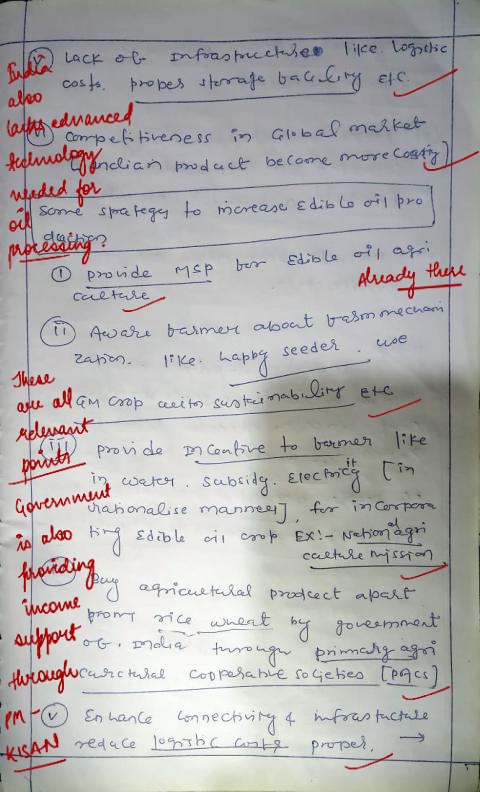 (V) Lack of Infrastructure like. Logistic
costs. proper storage facility Etc.
(VI) Competitiveness in Global market
[Indian product become more Costly]
India
also
lacks advanced
technology
needed for
oil
processing.
Some strategy to increase Edible oil pro
duction
(i) provide MSP for Edible oil agri
culture
Already there
(ii) Aware farmer about farm mechani
zation. like. happy seeder. use
GM crop with sustainability Etc
(iii) provide incentive to farmer like
in water. subsidy. Electricity [in
rationalise manner], for incorpora
ting Edible oil crop Ex:- National agri
culture mission
Buy agricultural product apart
from rice wheat by government
of. India through primary agri
curctural cooperative societies [PACS]
(V) Enhance connectivity & infrastructure
reduce logistic costs proper. →
These
are all
relevant
points
Government
is also
providing
income
support
through
PM-
KISAN